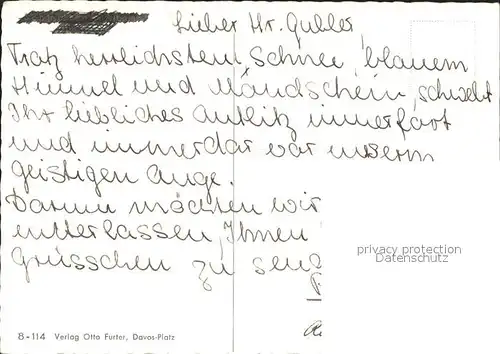 Lieber Hr. Gubler,
Tratz herrlichstem Schnee, blauem
Himmel und Mandschein, schwebt
Ihr liebliches Antlitz immerfort
und immerdar vor unserm
geistigen Auge.
Darum möchten wir
unterlassen, Ihnen
Grüsschen zu
privacy protection
Datenschutz
8-114 Verlag Otto Furter, Davos-Platz